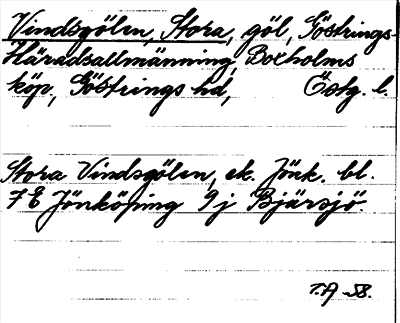 Vindsgölen, Stora, göl, Göstrings
Häradsallmänning, Boxholms
köp, Göstrings hd, Östg. l.
Stora Vindsgölen, ek. Jönk. bl.
7 E Jönköping 9 j Bjärsjö.
T.A -58.